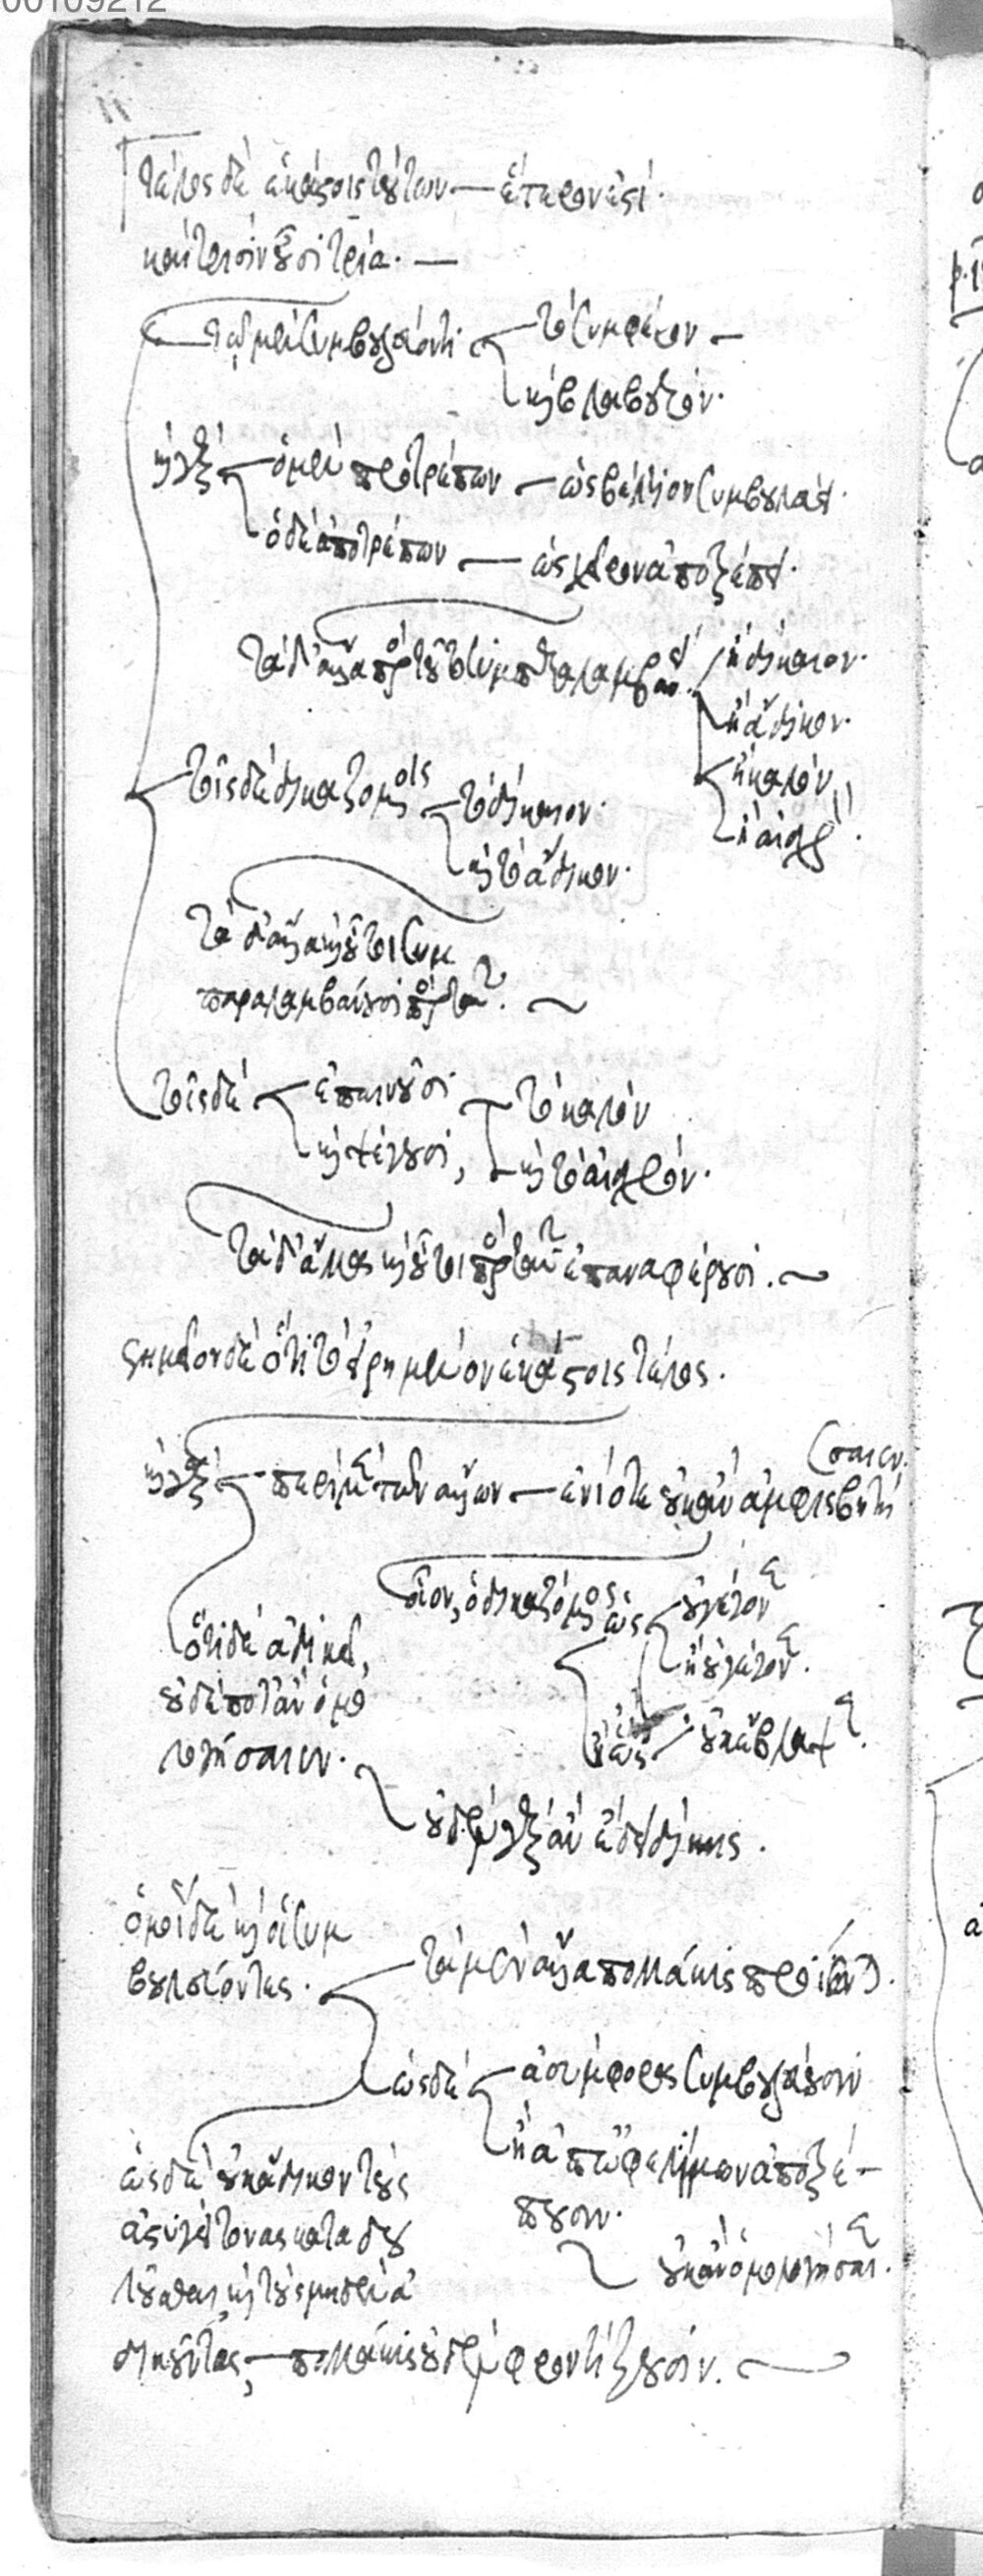 00109212
τέλος δὲ ἑκάστοις τούτων — ἕτερόν ἐστι.
καὶ τρισὶν οὖσι τρία. —
τῷ μὲν συμβουλεύοντι τὸ συμφέρον —
καὶ βλαβερόν.
ὁ μὲν προτρέπων — ὡς βέλτιον συμβουλεύει.
ὁ δὲ ἀποτρέπων — ὡς χεῖρον ἀποτρέπει.
τὰ δ' ἄλλα πρὸς τοῦτο συμπαραλαμβάνει ἢ δίκαιον.
ἢ ἄδικον.
ἢ καλὸν
ἢ αἰσχρόν.
τοῖς δὲ δικαζομένοις τὸ δίκαιον.
καὶ τὸ ἄδικον.
τὰ δ' ἄλλα καὶ οὗτοι συμ
παραλαμβάνουσι πρὸς ταῦτα. ~
τοῖς δὲ ἐπαινοῦσι τὸ καλὸν
καὶ ψέγουσι, καὶ τὸ αἰσχρόν.
τὰ δ' ἄλλα καὶ οὗτοι πρὸς ταῦτα ἐπαναφέρουσι. ~
σημεῖον δὲ ὅτι τὸ εἰρημένον ἑκάστοις τέλος.
περὶ μὲν τῶν ἄλλων — ἐνίοτε οὐκ ἂν ἀμφισβητή
σαιεν.
οἷον, ὁ δικαζόμενος ὡς οὐ γέγονεν
ἢ οὐ γέγονεν.
ἢ ὡς οὐκ ἔβλαψεν.
ὅτι δὲ ἀδικεῖ,
οὐδέποτ' ἂν ὁμο
λογήσαιεν.
οὐδὲν γὰρ ἂν ἔδει δίκης.
ὁμοίως δὲ καὶ οἱ συμ
βουλεύοντες. τὰ μὲν ἄλλα πολλάκις προΐενται.
ὡς δὲ ἀσύμφορα συμβουλεύουσιν
ἢ ἀπ' ὠφελίμων ἀποτρέ-
πουσιν.
οὐκ ἂν ὁμολογήσαιεν.
ὡς δὲ οὐκ ἄδικον τοὺς
ἀστυγείτονας καταδου
λοῦσθαι καὶ τοὺς μηδὲν ἀ
δικοῦντας, — πολλάκις οὐδὲν φροντίζουσιν. ~